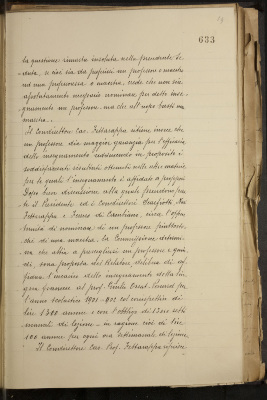 633
la questione rimasta insoluta nella precedente se-
duta, e cioè sia da preferirsi un professore o maestro
ad una professoressa o maestra, crede che non sia
assolutamente necessario nominare per detto inse-
gnamento un professore, ma che all'uopo basti una
maestra.
Il Consultore Cav. Fettarappa ritiene invece che
un professore dia maggior garanzia per l'efficacia
dello insegnamento, adducendo in proposito i
soddisfacenti risultati ottenuti nelle altre materie
per le quali l'insegnamento è affidato a professori.
Dopo breve discussione alla quale prendono par-
te il Presidente ed i Consultori
Fettarappa e Franco di circa l'oppor-
tunità di nominare di un professore piuttosto-
che di una maestra, la Commissione ritenu-
to che altri
di, sopra proposta del Relatore delibera di af-
fidare l'incarico dello insegnamento della lin-
gua francese al prof. per
l'anno scolastico 1901-902 col corrispettivo di
lire 1300 annue e con l'obbligo di 13 ore setti-
manali di lezione, in ragione cioè di lire
100 annue per ogni ora settimanale di lezione.
Il Consultore Cav. Prof. Fettarappa